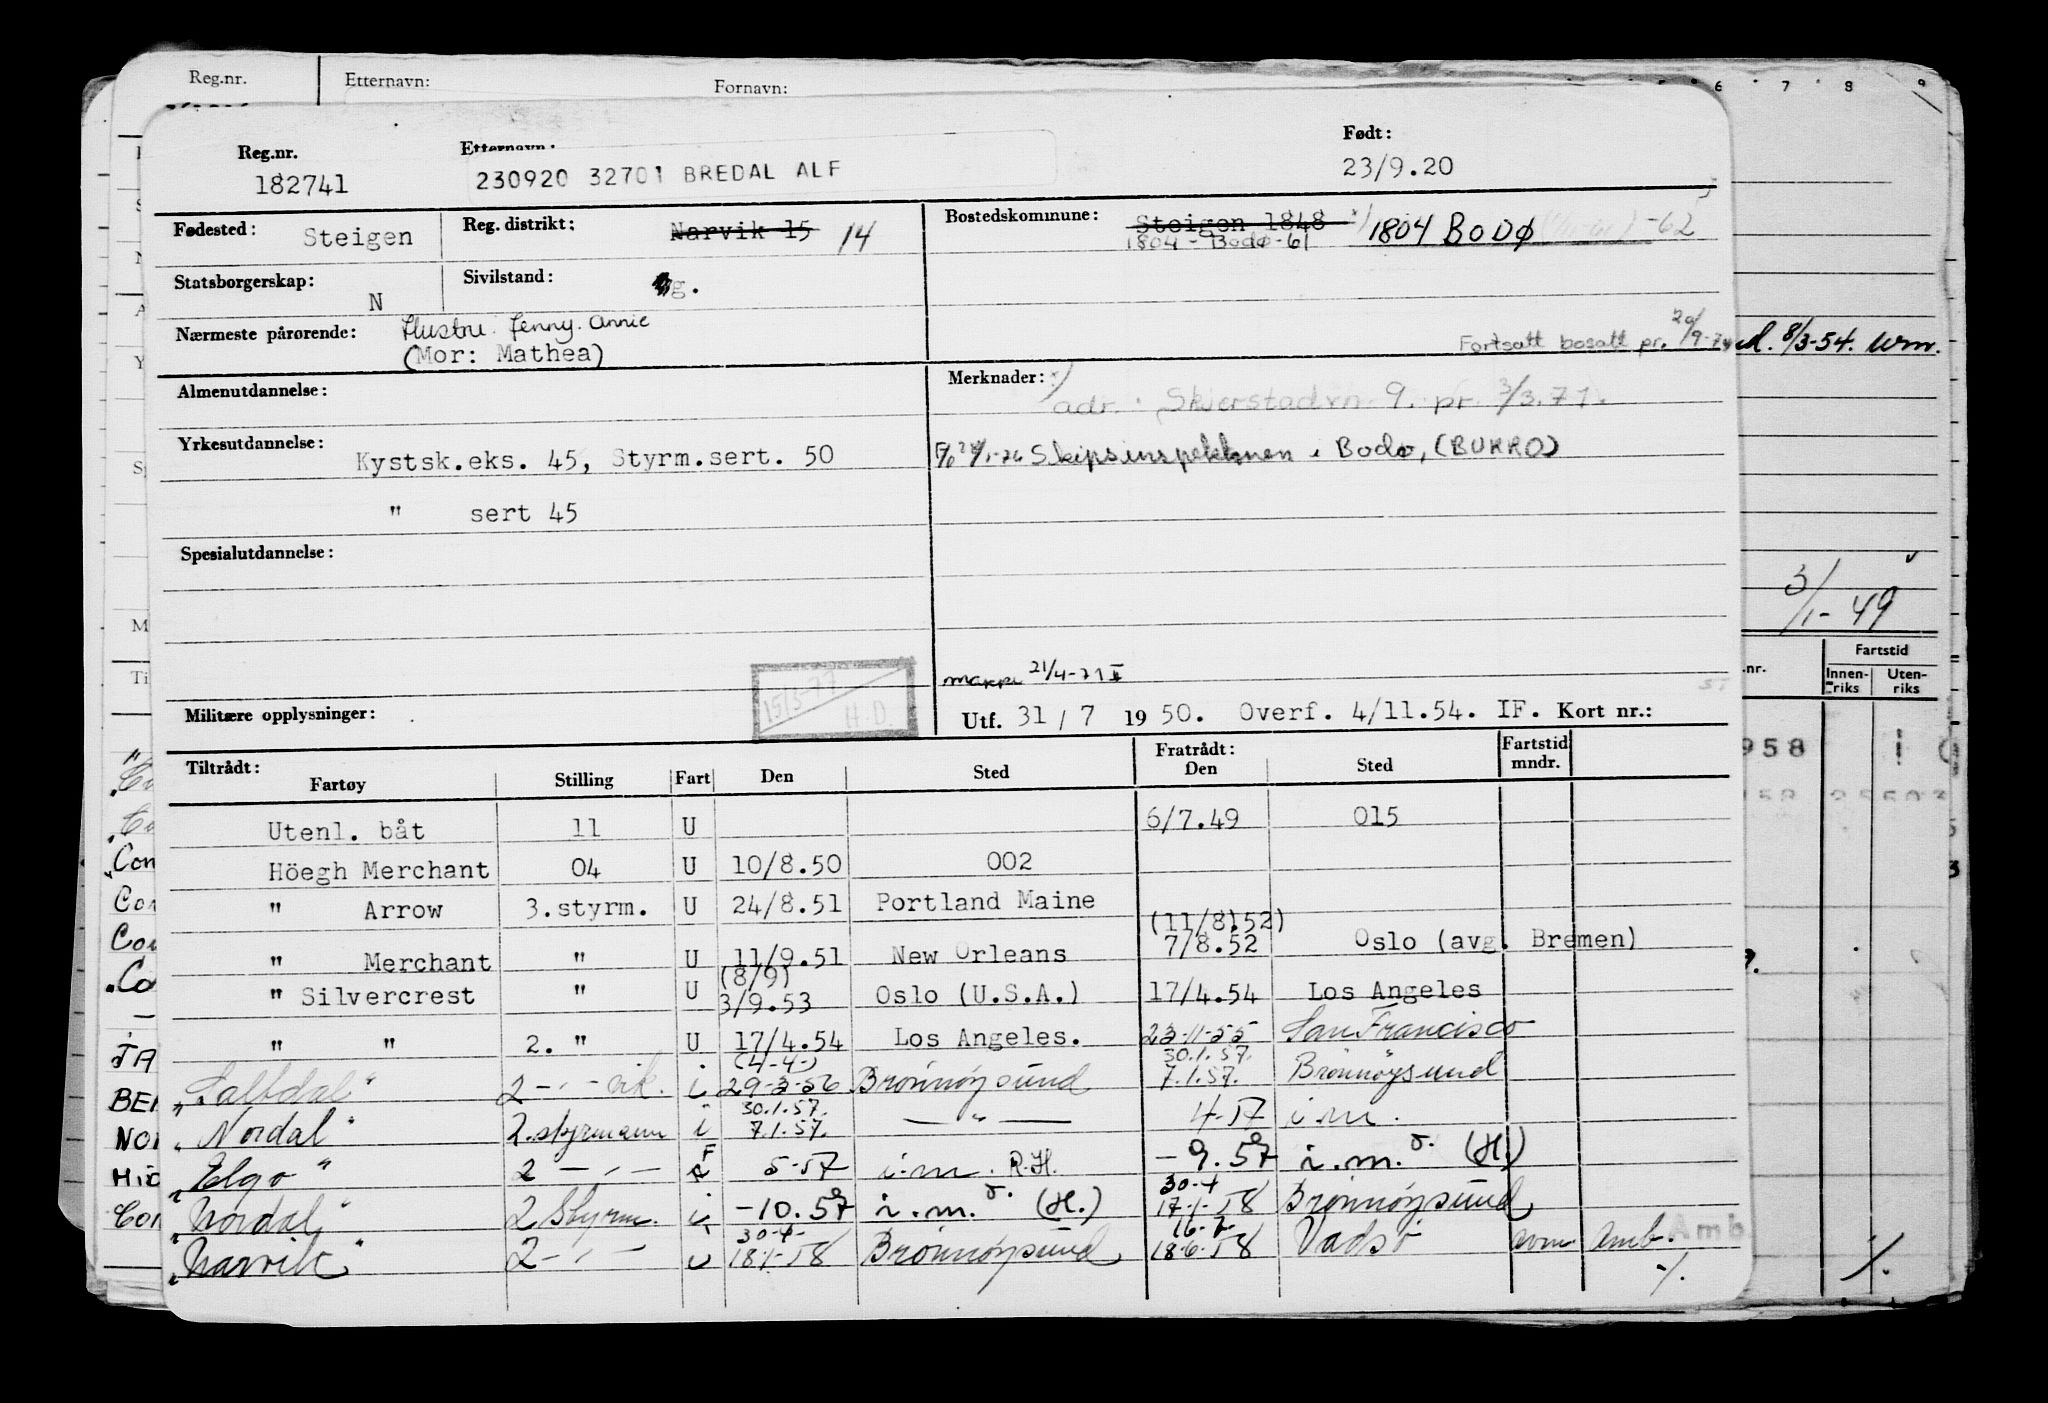 Reg.nr. Etternavn: Fornavn: 6 7 8 9
Reg.nr. Etternavn: Født:
182741 230920 32701 BREDAL ALF 23/9.20
Fødested: Steigen Reg. distrikt: Narvik 15 14 Bostedskommune: Steigen 1848 x) 1804 BODØ -62
1804 - Bodø -61
Statsborgerskap: N Sivilstand: g.
Nærmeste pårørende: Hustru Jenny. Annie
(Mor: Mathea)
Fortsatt bosatt pr. 20/9-74 d. 8/3-54. wm.
Almenutdannelse: Merknader: x)
adr. Skjerstadvn 9. pr. 3/3.71.
Yrkesutdannelse: Kystsk.eks. 45, Styrm.sert. 50
Skipsinspektionen i Bodø, (BURRO)
" sert 45
Spesialutdannelse:
3/1-49
15/5-77
H.D.
21/4-71
Militære opplysninger: Utf. 31/7 1950. Overf. 4/11.54. IF. Kort nr.:
nr. Fartstid
Innenriks Utenriks
Tiltrådt: Fratrådt: Fartstid mndr.
Fartøy Stilling Fart Den Sted Den Sted
Utenl. båt 11 U 6/7.49 015
Höegh Merchant 04 U 10/8.50 002
" Arrow 3.styrm. U 24/8.51 Portland Maine
(11/8)52)
" Merchant " U 11/9.51 New Orleans 7/8.52 Oslo (avg. Bremen)
(8/9)
" Silvercrest " U 3/9.53 Oslo (U.S.A.) 17/4.54 Los Angeles
" " 2. " U 17/4.54 Los Angeles. 23-11-55 San Francisco
(4-4-) 30.1.57.
"Saltdal" 2 -"- vik. i 29-3-56 Brønnøysund 7.1.57. Brønnøysund
30.1.57.
"Nordal" 2.styrmann i 7.1.57. — " — 4-57 i.m.
"Elgo" 2 — " — F 5-57 i.m. R.H. -9.57 i.m. (H.)
30-4
"Nordal" 2 Styrm. i -10.57 i.m. (H.) 17-1-58 Brønnøysund
30-4- 16-7-
"Narvik" 2 - " - U 18-1-58 Brønnøysund 18-6-58 Vadsø avm Amb.
Amb.